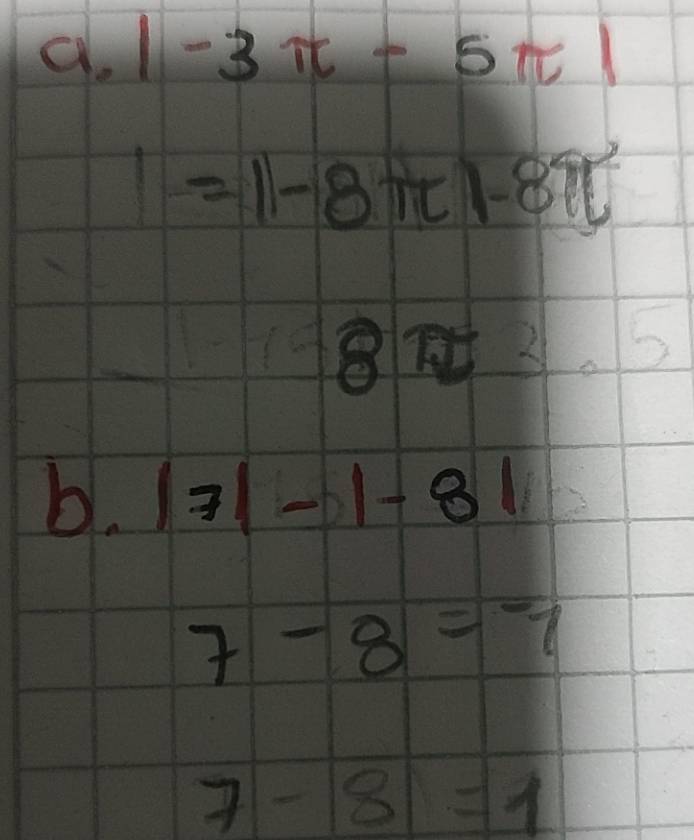 a. |-3π - 5π|
= ||-8π|-8π
8π
b. |7| - |-8|
7 - 8 = -1
7 - 8 = 1